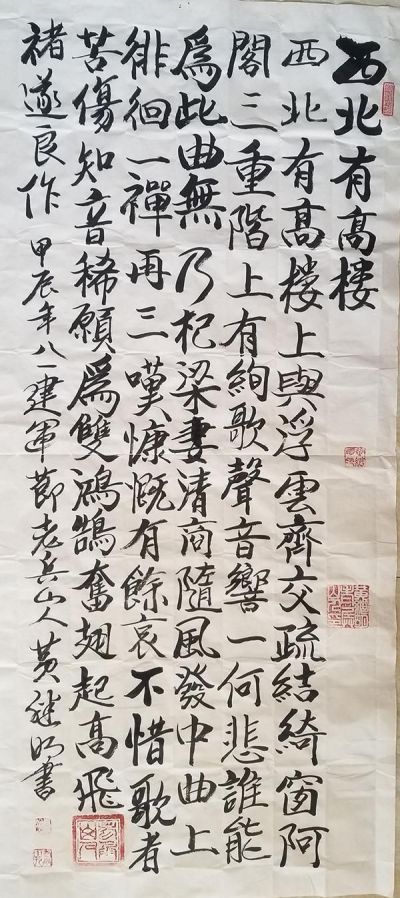 西北有髙樓
西北有髙樓上與浮雲齊交疏結綺窗阿
閣三重階上有絢歌聲音響一何悲誰能
爲此曲無乃杞梁妻清商隨風發中曲上
徘徊一禪再三嘆慷慨有餘哀不惜歌者
苦傷知音稀願爲雙鴻鵠奮翅起髙飛
褚遂良作 甲辰年八一建軍節老兵山人黄继明書